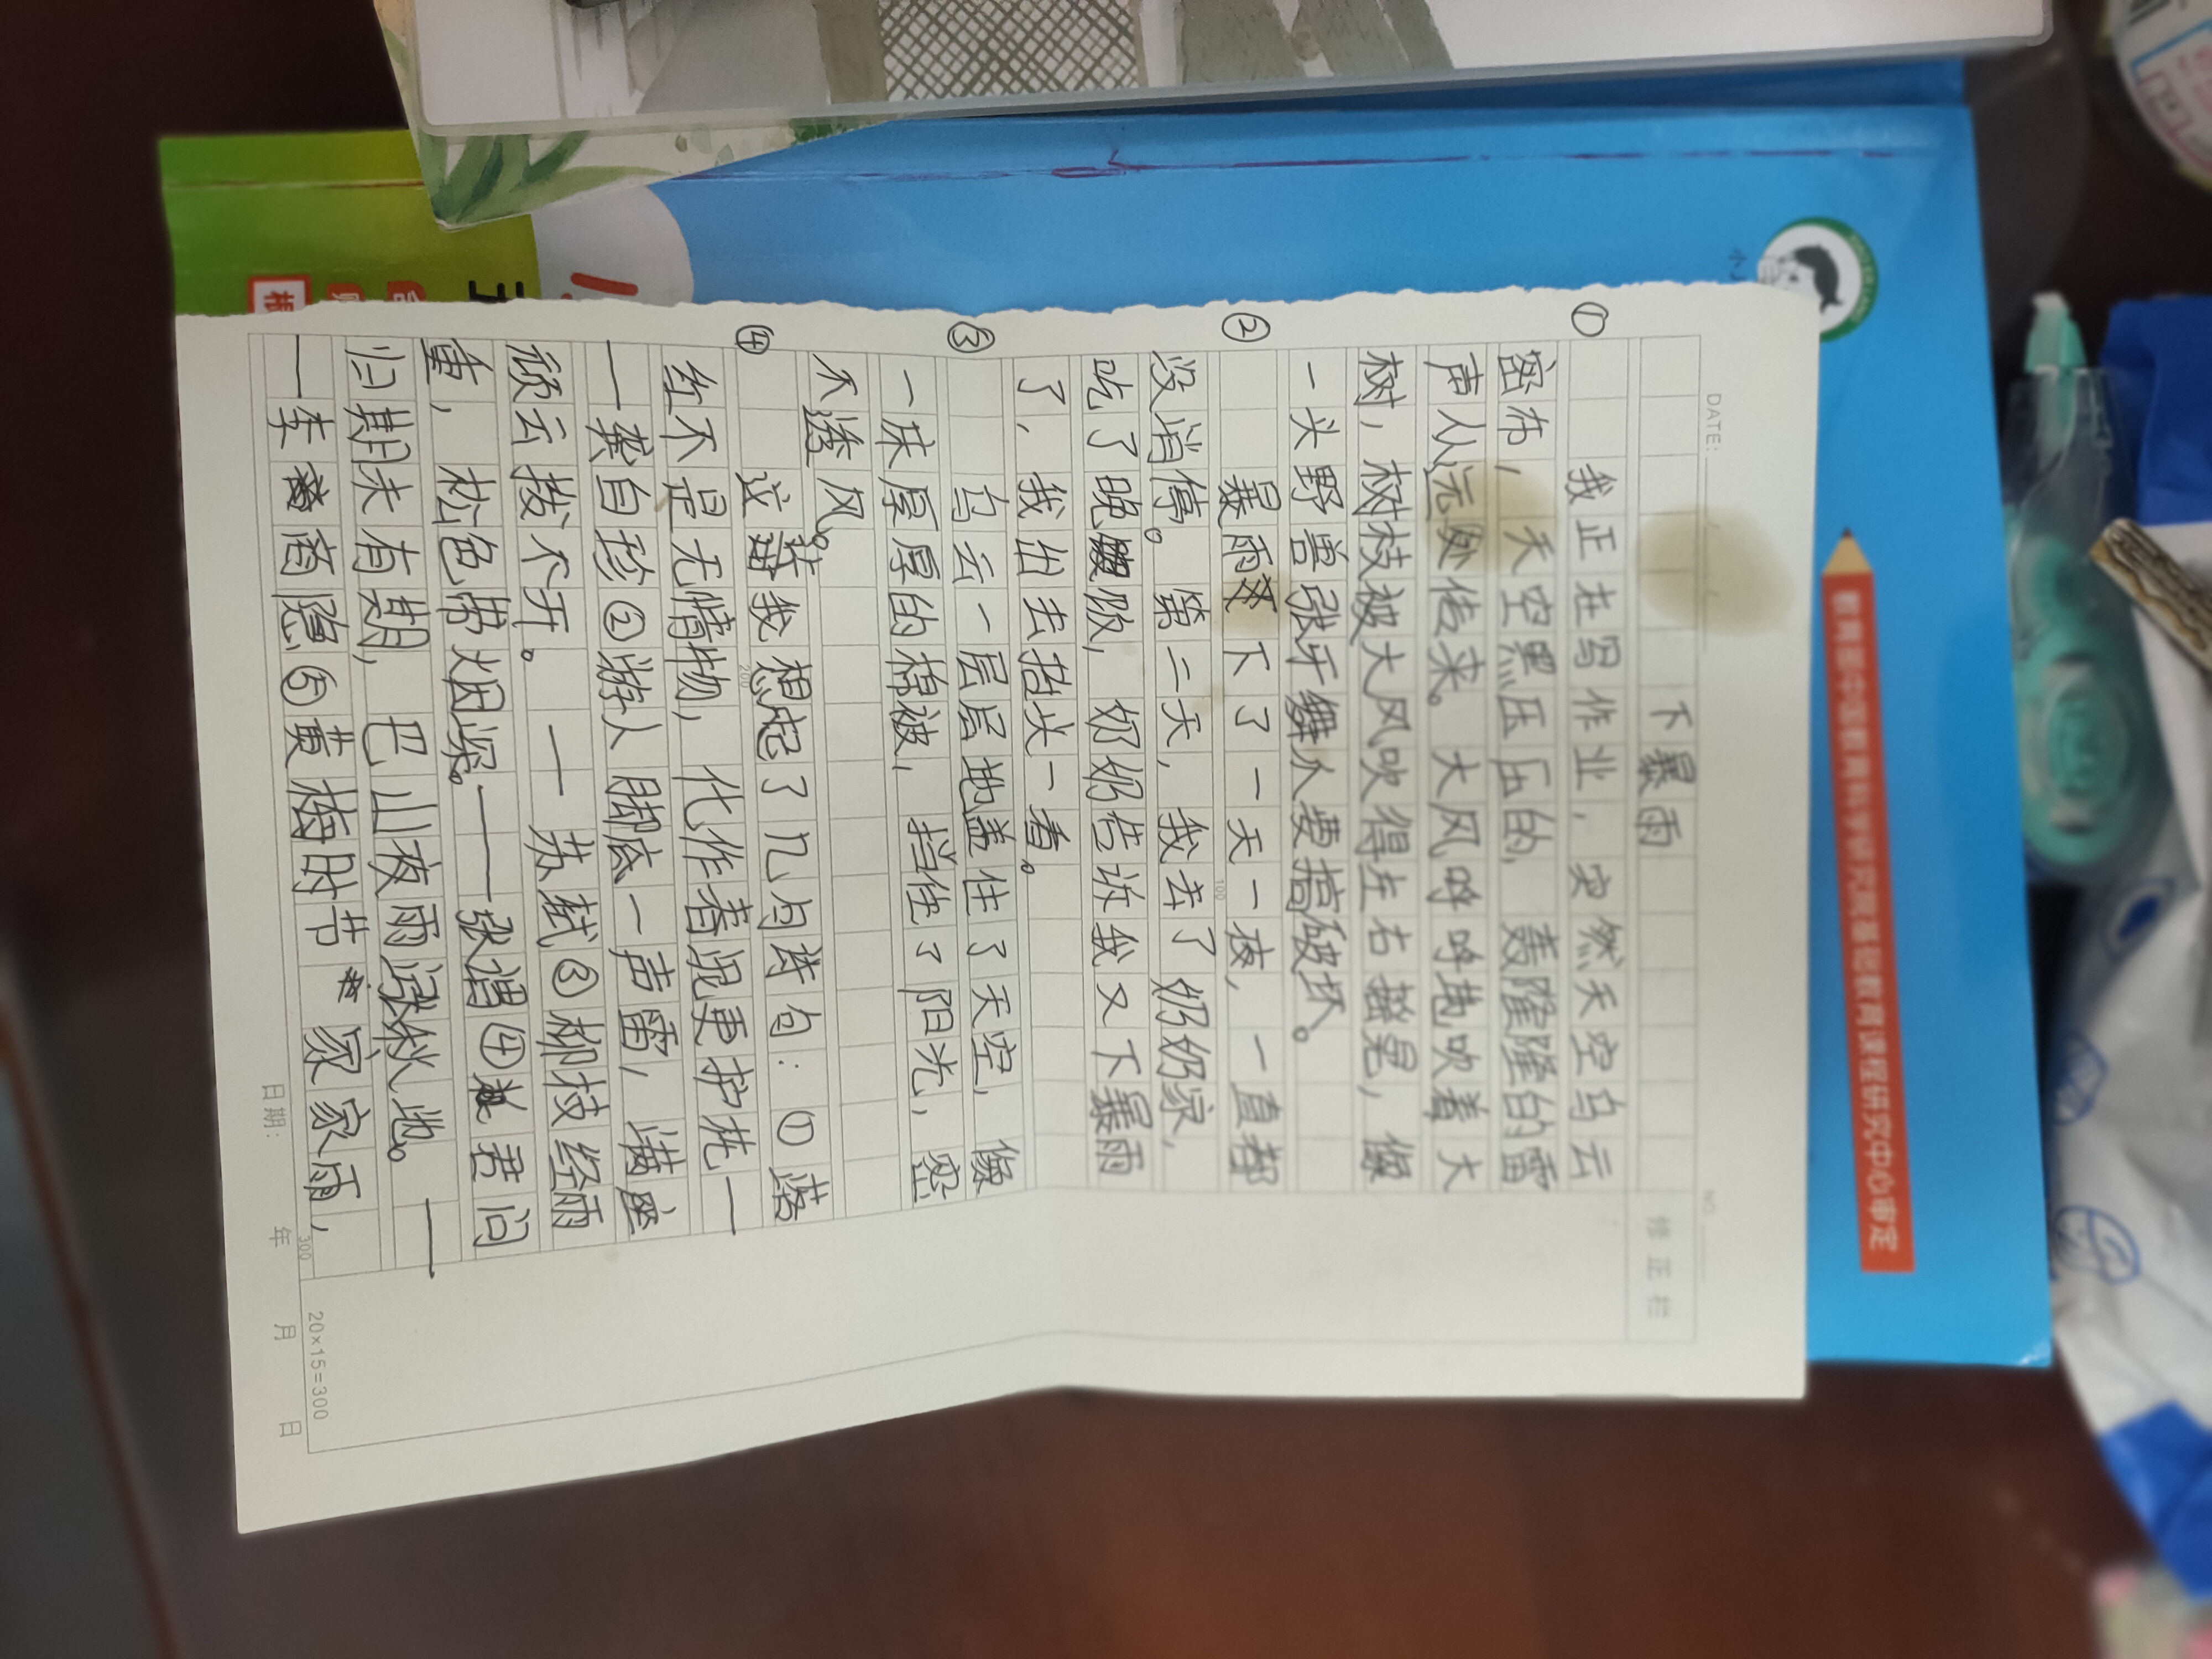 DATE:
NO
修正栏
下暴雨
① 我正在写作业，突然天空乌云
密布，天空黑压压的，轰隆隆的雷
声从远处传来。大风呼呼地吹着大
树，树枝被大风吹得左右摇晃，像
一头野兽张牙舞爪要搞破坏。
② 暴雨下了一天一夜，一直都
没消停。第二天，我去了奶奶家，
吃了晚饭，奶奶告诉我又下暴雨
了，我出去抬头一看。
③ 乌云一层层地盖住了天空，像
一床厚厚的棉被，挡住了阳光，密
不透风。
④ 这让我想起了几句诗句：①落
红不是无情物，化作春泥更护花一
一龚自珍②游人脚底一声雷，满座
顽云拨不开。——苏轼③柳枝经雨
重，松色带烟深。——张谓④君问
归期未有期，巴山夜雨涨秋池。——
一李商隐⑤黄梅时节家家雨，
100
200
300
20×15=300
日期： 年 月 日
教育部中国教育科学研究院基础教育课程研究中心审定
小